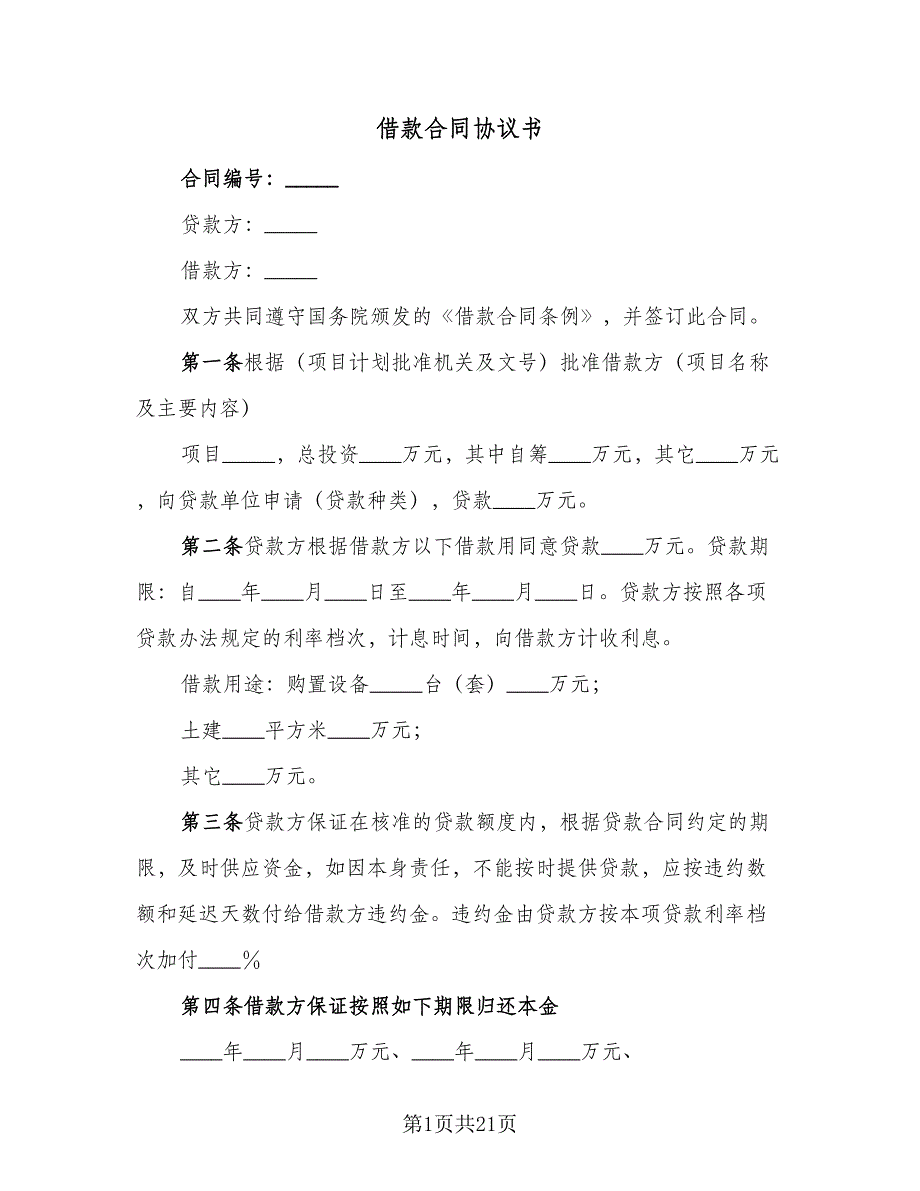 借款合同协议书
合同编号：_____
贷款方：_____
借款方：_____
双方共同遵守国务院颁发的《借款合同条例》，并签订此合同。
第一条根据（项目计划批准机关及文号）批准借款方（项目名称
及主要内容）
项目_____，总投资____万元，其中自筹____万元，其它____万元
，向贷款单位申请（贷款种类），贷款____万元。
第二条贷款方根据借款方以下借款用同意贷款____万元。贷款期
限：自____年____月____日至____年____月____日。贷款方按照各项
贷款办法规定的利率档次，计息时间，向借款方计收利息。
借款用途：购置设备_____台（套）____万元；
土建____平方米____万元；
其它____万元。
第三条贷款方保证在核准的贷款额度内，根据贷款合同约定的期
限，及时供应资金，如因本身责任，不能按时提供贷款，应按违约数
额和延迟天数付给借款方违约金。违约金由贷款方按本项贷款利率档
次加付____％
第四条借款方保证按照如下期限归还本金
____年____月____万元、____年____月____万元、
第1页共21页